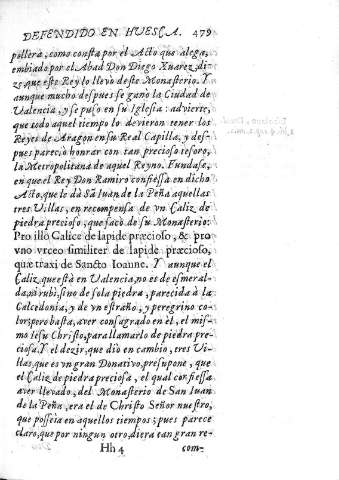 DEFENDIDO EN HUESCA. 479
pollera, como consta por el Acto que alega,
embiado por el Abad Don Diego Xuarez, di-
ze que este Rey lo llevo deste Monasterio. Y
aunque mucho despues se ganò la Ciudad de
Valencia, y se puso en su Iglesia: advierte,
que todo aquel tiempo lo devieron tener los
Reyes de Aragon en su Real Capilla, y des-
pues pareciò honrar con tan precioso tesoro,
la Metropolitana de aquel Reyno. Fundase,
en que el Rey Don Ramiro confiessa en dicho
Acto, que le dà San Iuan de la Peña aquellas
tres Villas, en recompensa de vn Caliz de
piedra precioso, que sacò de su Monasterio:
Pro illo Calice de lapide præcioso, & pro
vno vrceo similiter de lapide præcioso,
quæ traxi de Sancto Ioanne. Y aunque el
Caliz, que està en Valencia, no es de esmeral-
da, ni rubi, sino de sola piedra, parecida à la
Calcedonia, y de vn estraño, y peregrino co-
lor; pero basta, aver consagrado en èl, el mis-
mo Iesu Christo, para llamarlo de piedra pre-
ciosa. Y el dezir, que diò en cambio, tres Vi-
llas, que es vn gran Donativo, presupone, que
el Caliz de piedra preciosa, el qual confiessa
aver llevado, del Monasterio de San Iuan
de la Peña, era el de Christo Señor nuestro,
que posseia en aquellos tiempos; pues parece
claro, que por ningun otro, diera tan gran re-
Hh 4 com-